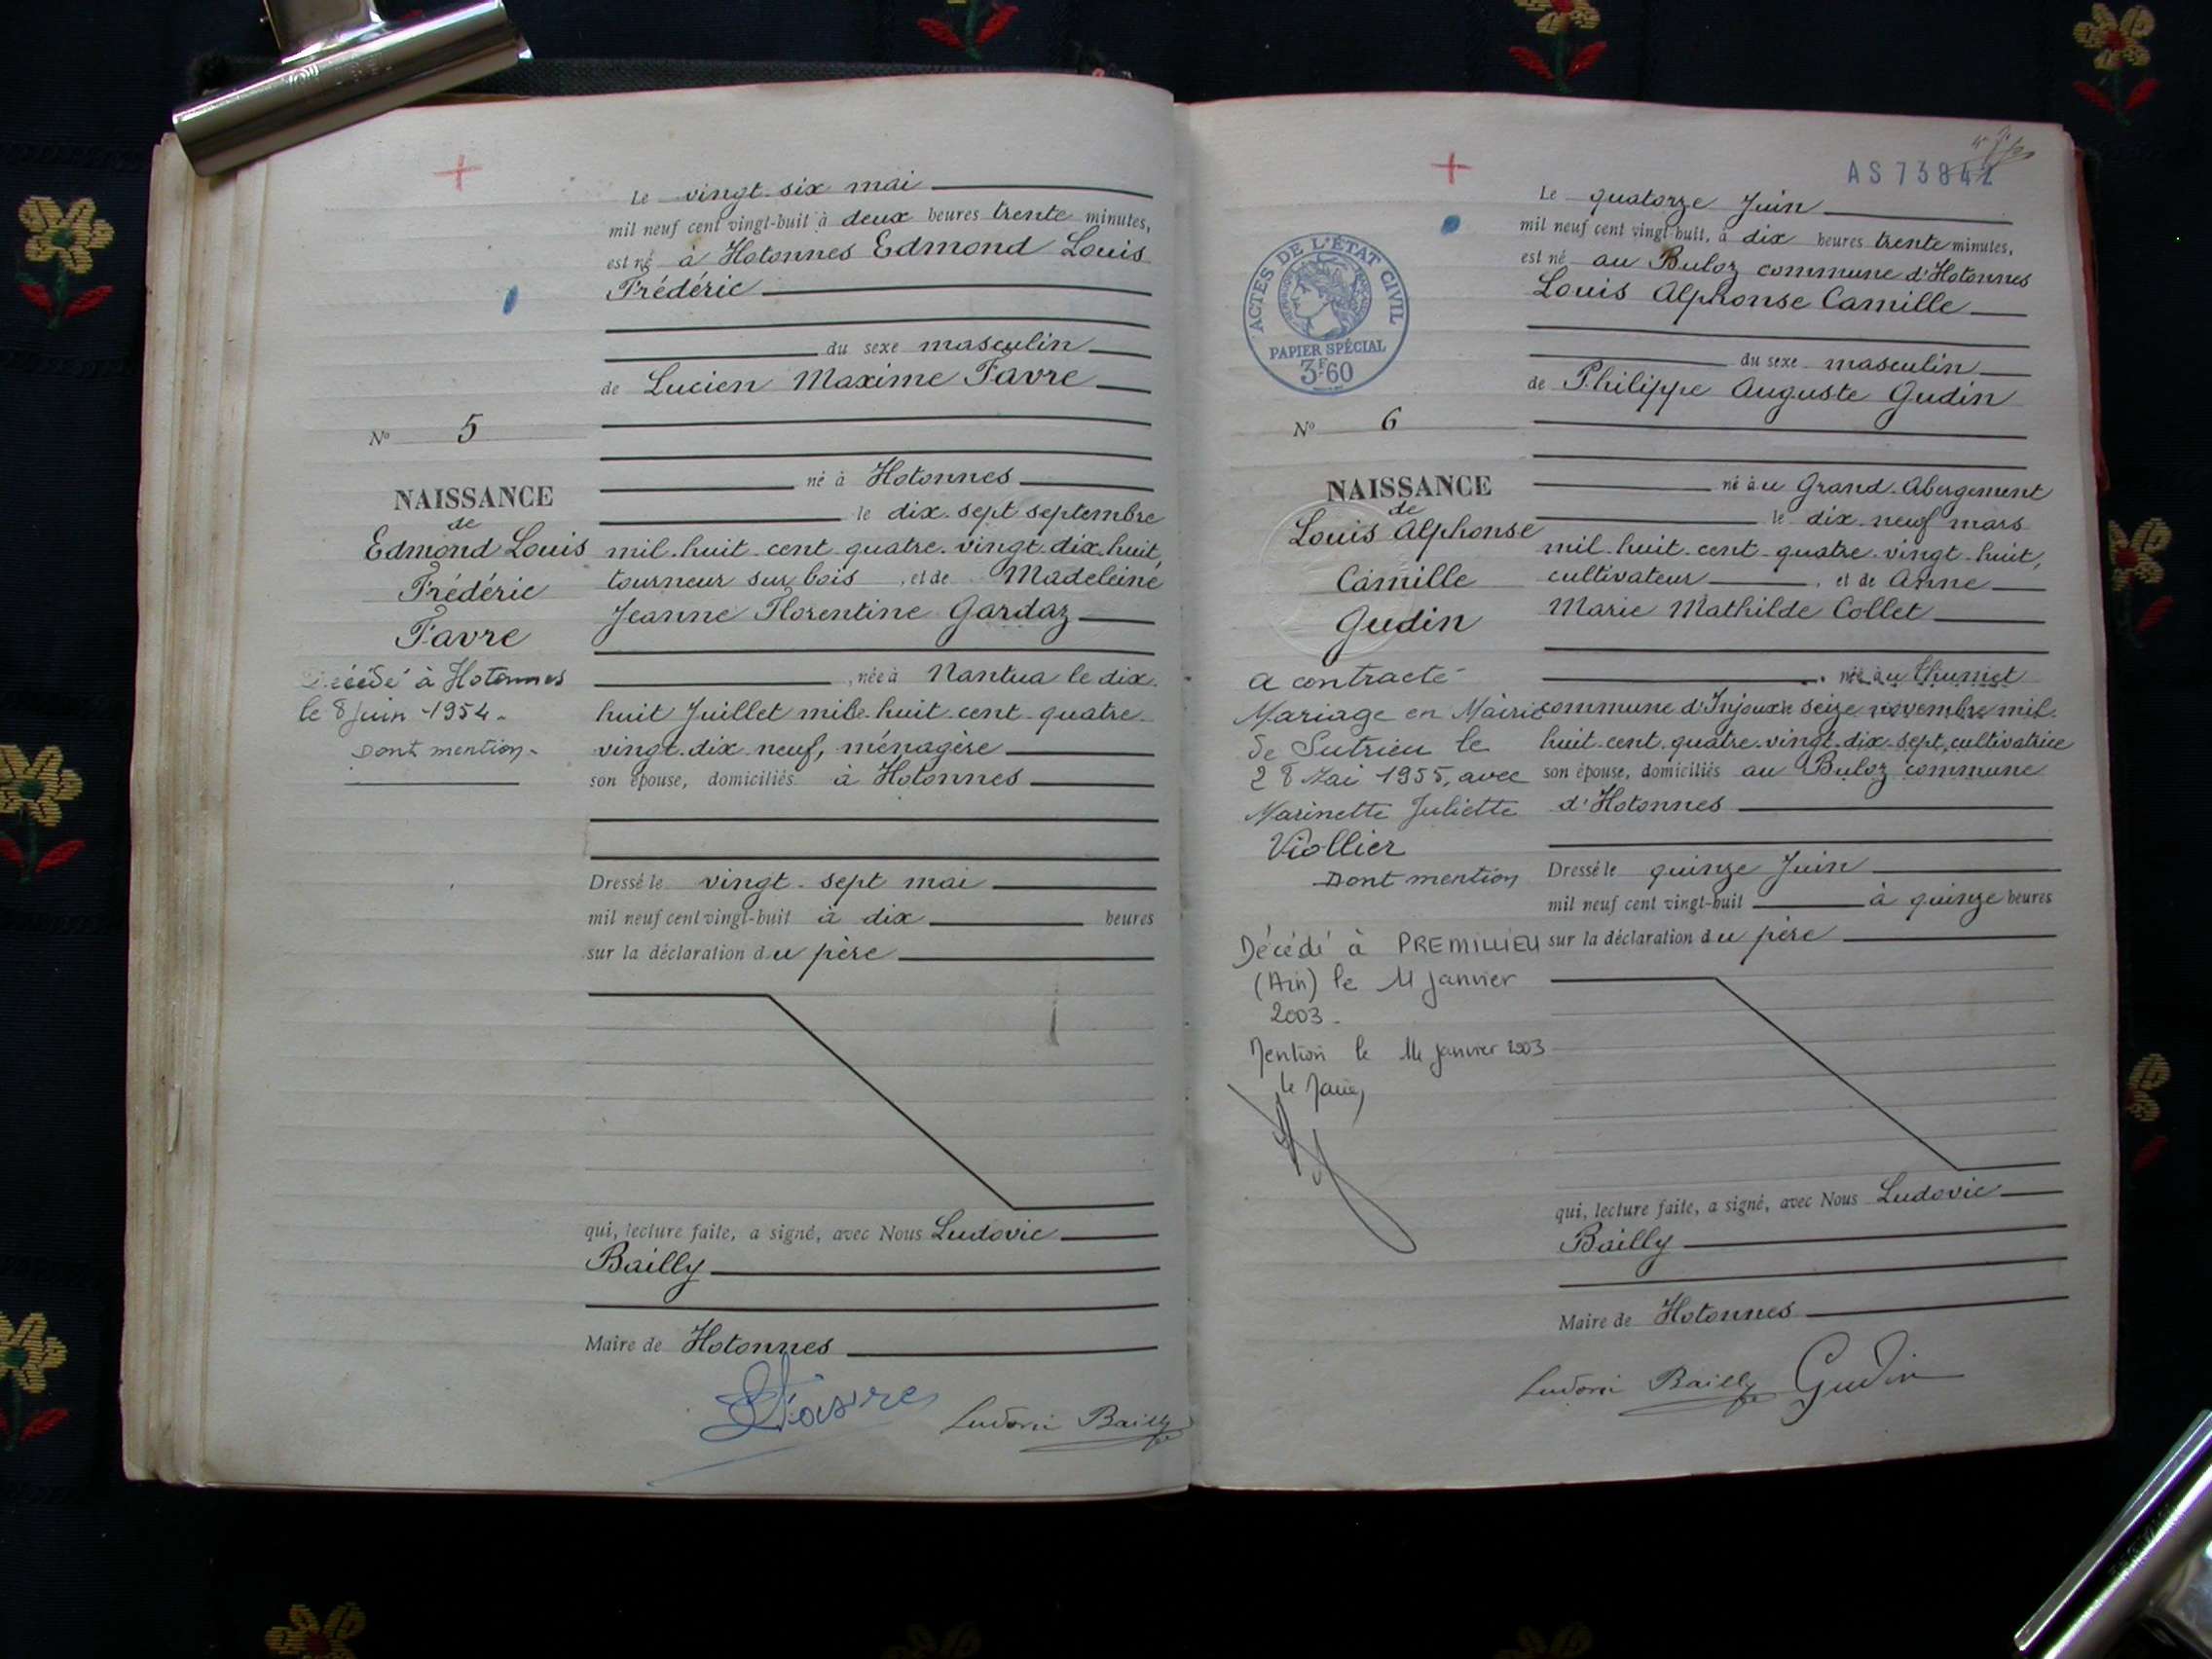 Le vingt-six mai
mil neuf cent vingt-huit à deux heures trente minutes,
est né à Hotonnes Edmond Louis
Frédéric
du sexe masculin
de Lucien Maxime Favre
né à Hotonnes
le dix-sept septembre
mil-huit-cent-quatre-vingt-dix-huit,
tourneur sur bois, et de Madeleine
Jeanne Florentine Gardaz
, née à Nantua le dix-
huit Juillet mil-huit-cent-quatre-
vingt-dix-neuf, ménagère
son épouse, domiciliés à Hotonnes
Dressé le vingt-sept mai
mil neuf cent vingt-huit à dix heures
sur la déclaration du père
qui, lecture faite, a signé, avec Nous Ludovic
Bailly
Maire de Hotonnes
Favre
Ludovic Bailly
No 5
NAISSANCE
de
Edmond Louis
Frédéric
Favre
Décédé à Hotonnes
le 8 Juin 1954.
Dont mention.
AS 73842
Le quatorze Juin
mil neuf cent vingt-huit, à dix heures trente minutes,
est né au Buloz commune d'Hotonnes
Louis Alphonse Camille
du sexe masculin
de Philippe Auguste Gudin
né au Grand-Abergement
le dix-neuf mars
mil-huit-cent-quatre-vingt-huit,
cultivateur, et de Anne
Marie Mathilde Collet
, née au
commune d'Injoux le seize novembre mil-
huit-cent-quatre-vingt-dix-sept, cultivatrice
son épouse, domiciliés au Buloz commune
d'Hotonnes
Dressé le quinze Juin
mil neuf cent vingt-huit à quinze heures
sur la déclaration du père
qui, lecture faite, a signé, avec Nous Ludovic
Bailly
Maire de Hotonnes
Ludovic Bailly Gudin
ACTES DE L'ÉTAT CIVIL
PAPIER SPÉCIAL
3F60
No 6
NAISSANCE
de
Louis Alphonse
Camille
Gudin
a contracté
Mariage en Mairie
de Sutrieu le
28 Mai 1955, avec
Marinette Juliette
Viollier
Dont mention
Décédé à PREMILLIEU
(Ain) le 11 Janvier
2003.
Mention le 14 Janvier 2003
le Maire,